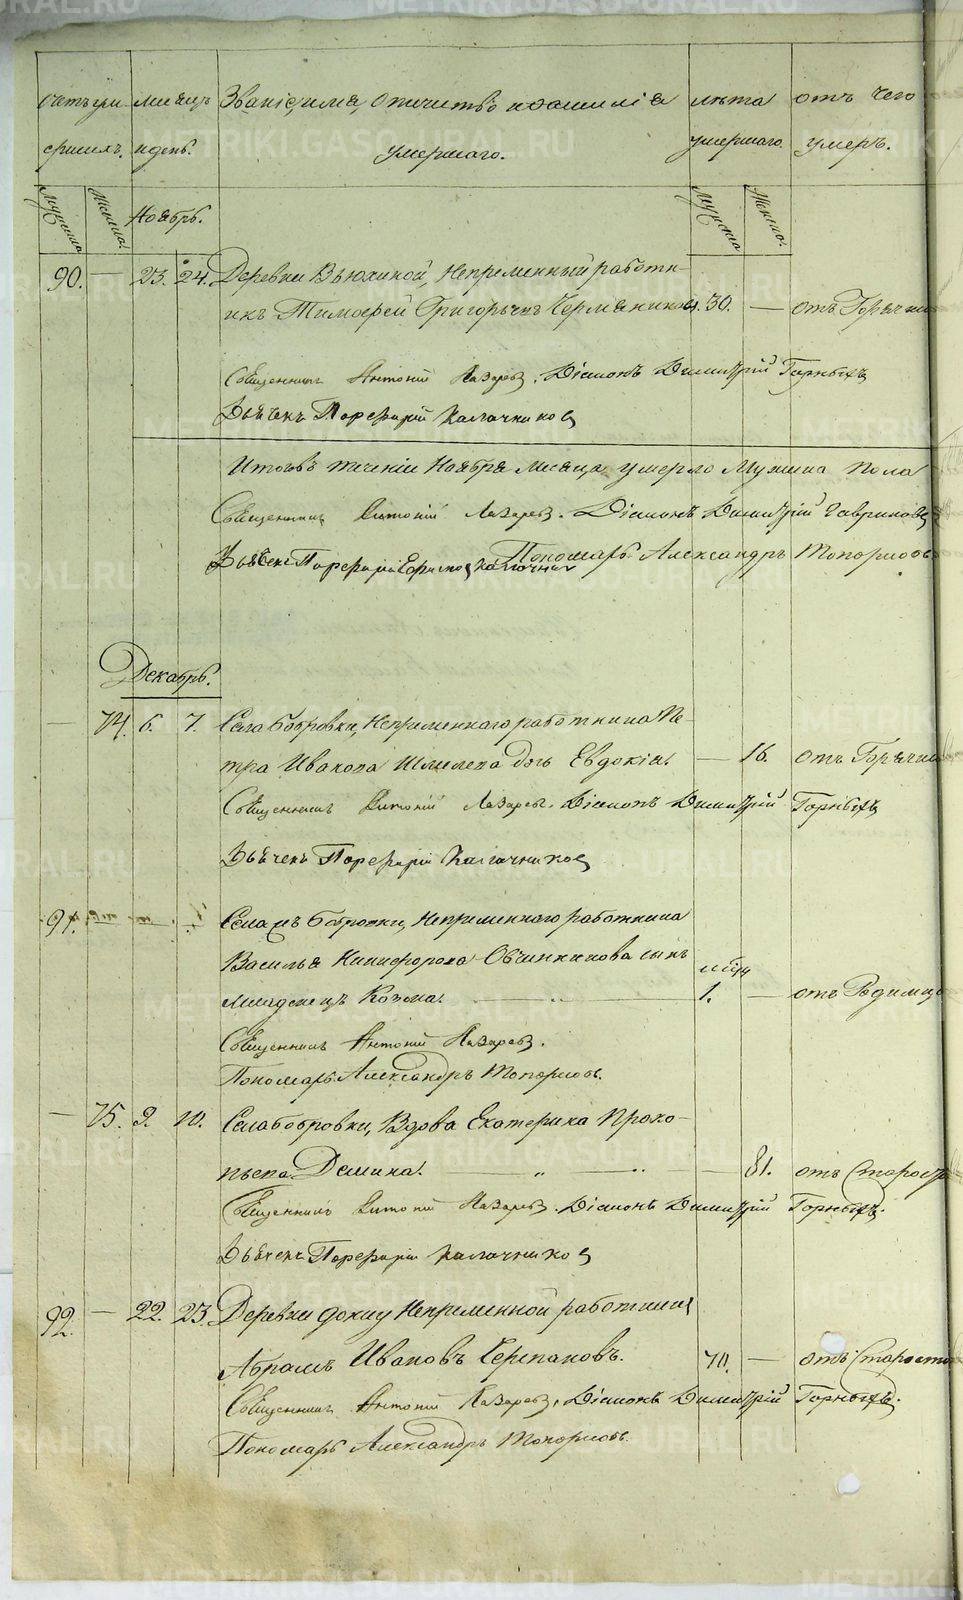 Счетъ уми- Месяцъ Званіе, имя, отечество и фамилія лѣта отъ чего
ершихъ. и день. умершаго. умершаго. умеръ.
Мужска Женска. Ноябрь. Мужска Женска.
90. — 23. 24. Деревни Вьюхиной, Непременный работн-
икъ Тимофей Григорьевъ 30. — отъ Горячки
Священникъ Антоній Лазаревъ. Діаконъ Димитрій Горныхъ
Дьячекъ Порфирій Калачников
Итого въ теченіи Ноября месяца умерло Мужска пола
Священникъ Антоній Лазаревъ. Діаконъ Димитрій
Дьячекъ Порфирій Калачников Пономарь Александръ Топорковъ
Декабрь.
— 74. 6. 7. Села Бобровки, Непременнаго работника Пе-
тра Иванова Шмелева дочь Евдокія. — 16. отъ Горячки
Священникъ Антоній Лазаревъ. Діаконъ Димитрій Горныхъ
Дьячекъ Порфирій Калачников
91. — Села Бобровки, Непременнаго работника
Василья Никифорова Овчинникова сынъ
младенецъ Козма. 1. — отъ Родимца
Священникъ Антоній Лазаревъ.
Пономарь Александръ Топорковъ.
— 75. 9. 10. Села Бобровки, Вдова Екатерина Проко-
пьева Демина. — 81. отъ Старости
Священникъ Антоній Лазаревъ. Діаконъ Димитрій Горныхъ.
Дьячекъ Порфирій Калачников
92. — 22. 23. Деревни Непременной работникъ
Абрамъ Ивановъ Черпановъ. 70. — отъ Старости
Священникъ Антоній Лазаревъ. Діаконъ Димитрій Горныхъ.
Пономарь Александръ Топорковъ.
METRIKI.GASO-URAL.RU